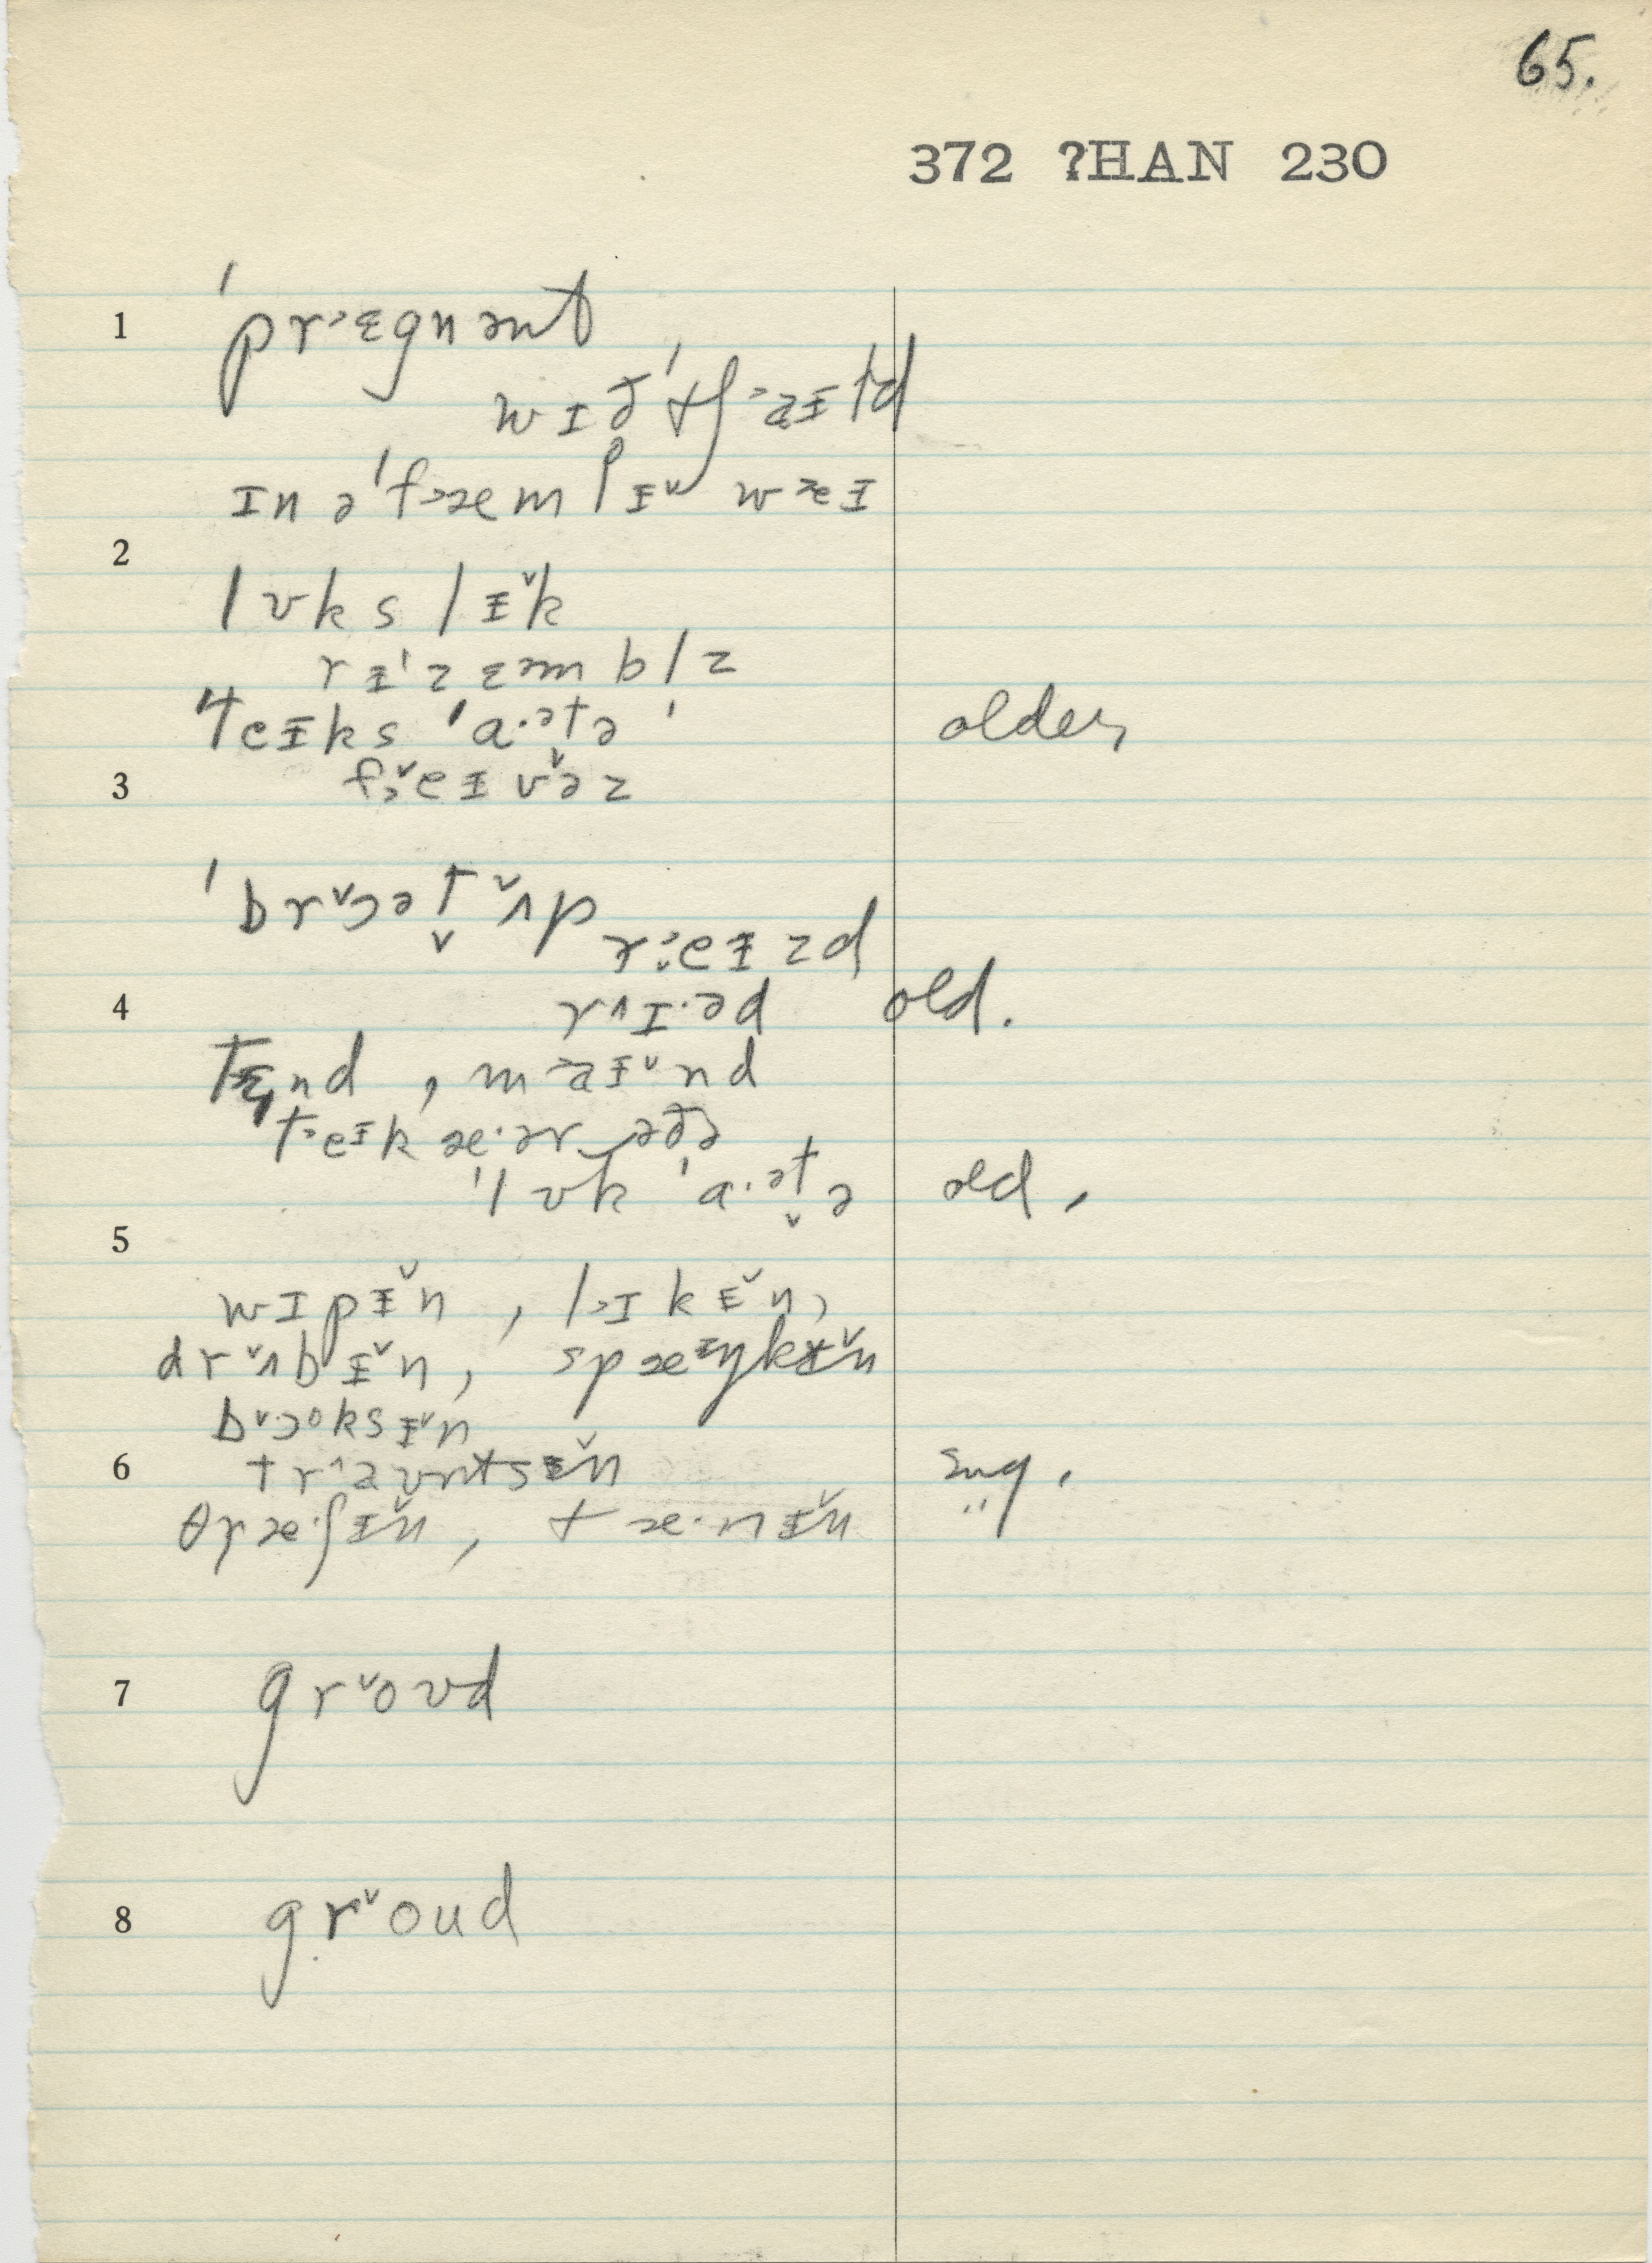 65.
372 ?HAN 230
1 ˈpr˃ɛgnənt
wɪð ˈtʃ˃aɪld
ɪn ə ˈf˃æmlɪ̵ˇ wæɪ
2
lʊks lɪ̵ˇk
rɪ̵ˈzɛmblz
ˈteɪ̵ks ˈa·ətə ˈ older,
3 f˃ˇeɪ̵vˇəz
ˈbrˇɔət ˇʌp
r˃eɪ̵zd
4 rʌɪ·əd old.
tɛnd, m˃aɪ̵ˇnd
t˃eɪ̵k æ·ər əðə
ˈlʊk ˈa·ətə old,
5
wɪpɪ̵ˇn, l˃ɪkɪ̵ˇn,
drˇʌbɪ̵ˇn, spæɪ̵ŋkɪ̵ˇn
bˇɔᵒksɪ̵ˇn
6 trˆaʊntsɪ̵ˇn sug.
θræ·ʃɪ̵ˇn, tæ·nɪ̵ˇn "
7 grˇoʊd
8 grˇoud